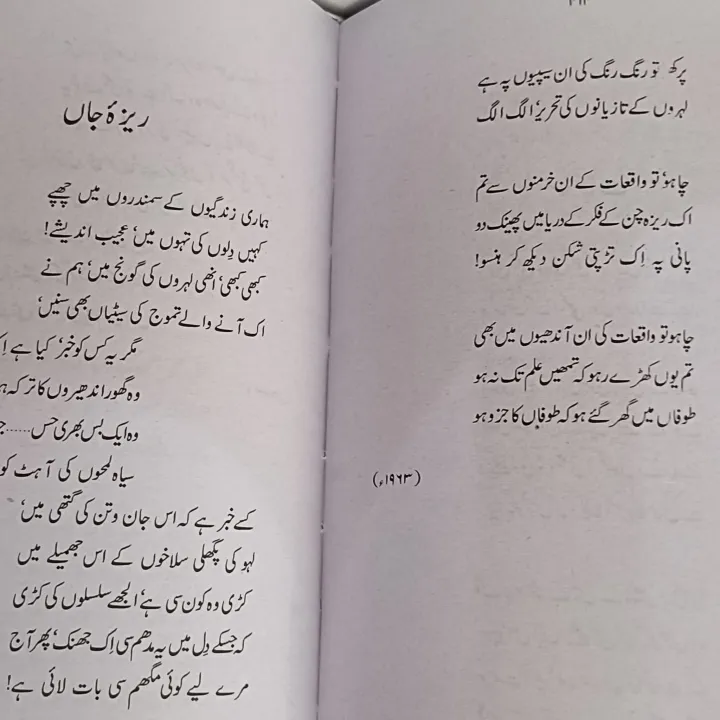 ۴۱۲
پرکھ تو رنگ رنگ کی ان سیپیوں پہ ہے
لہروں کے تازیانوں کی تحریر' الگ الگ
چاہو' تو واقعات کے ان خرمنوں سے تم
اک ریزہ چن کے فکر کے دریا میں پھینک دو
پانی پہ اِک تڑپتی شکن دیکھ کر ہنسو!
چاہو تو واقعات کی ان آندھیوں میں بھی
تم یوں کھڑے رہو کہ تمھیں علم تک نہ ہو
طوفاں میں گھر گئے ہو کہ طوفاں کا جزو ہو
(۱۹۶۳ء)
ریزۂ جاں
ہماری زندگیوں کے سمندروں میں چھپے
کہیں دِلوں کی تہوں میں' عجیب اندیشے!
کبھی کبھی' انھی لہروں کی گونج میں' ہم نے
اک آنے والے تموج کی سیٹیاں بھی سنیں'
مگر یہ کس کو خبر' کیا ہے
وہ گھور اندھیروں کا ترکہ
وہ ایک بس بھری حس......
سیاہ لمحوں کی آہٹ کو
کسے خبر ہے کہ اس جان و تن کی گتھی میں'
لہو کی پگھلی سلاخوں کے اس جھمیلے میں
کڑی وہ کون سی ہے' الجھے سلسلوں کی کڑی
کہ جسکے دِل میں یہ مدھم سی اِک جھنک' پھر آج
مرے لیے کوئی مبہم سی بات لائی ہے!